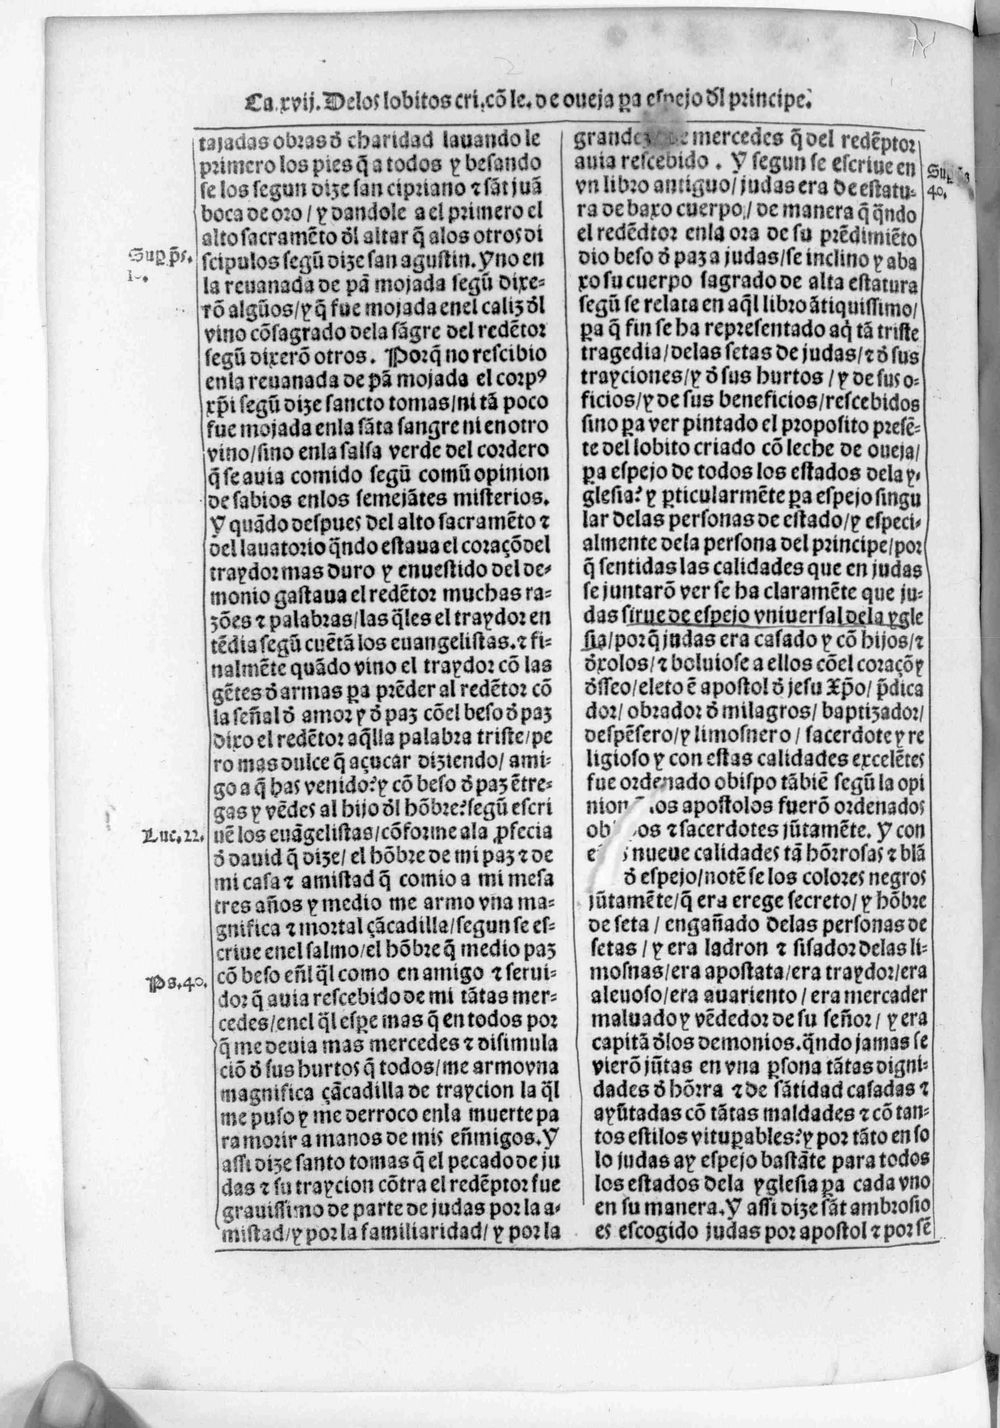 Ca.xvij. Delos lobitos cri.cõ le. de oueja pa espejo dl principe.
tajadas obras d charidad lauando le
primero los pies q̃ a todos y besando
se los segun dize san cipriano ⁊ sãt juã
boca de oro / y dandole a el primero el
alto sacramẽto dl altar q̃ alos otros di
scipulos segũ dize san agustin. Y no en
la reuanada de pã mojada segũ dixe-
rõ algũos / y q̃ fue mojada enel caliz dl
vino cõsagrado dela sãgre del redẽtor
segũ dixerõ otros. Porq̃ no rescibio
enla reuanada de pã mojada el corpꝰ
xp̃i segũ dize sancto tomas / ni tã poco
fue mojada enla sãta sangre ni en otro
vino / sino enla salsa verde del cordero
q̃ se auia comido segũ comũ opinion
de sabios enlos semejãtes misterios.
Y quãdo despues del alto sacramẽto ⁊
del lauatorio q̃ndo estaua el coraçõ del
traydor mas duro y enuestido del de-
monio gastaua el redẽtor muchas ra-
zões ⁊ palabras / las q̃les el traydor en
tẽdia segũ cuẽtã los euangelistas. ⁊ fi-
nalmẽte quãdo vino el traydor cõ las
gẽtes d armas pa prẽder al redẽtor cõ
la señal d amor y d paz cõel beso d paz
dixo el redẽtor aq̃lla palabra triste / pe
ro mas dulce q̃ açucar diziendo / ami-
go a q̃ has venido? y cõ beso d paz ẽtre-
gas y vẽdes al hijo dl hõbre? segũ escri
uẽ los euãgelistas / cõforme ala pfecia
d dauid q̃ dize / el hõbre de mi paz ⁊ de
mi casa ⁊ amistad q̃ comio a mi mesa
tres años y medio me armo vna ma-
gnifica ⁊ mortal çãcadilla / segun se es-
criue enel salmo / el hõbre q̃ medio paz
cõ beso eñl q̃l como en amigo ⁊ serui-
dor q̃ auia rescebido de mi tãtas mer-
cedes / enel q̃l espe mas q̃ en todos por
q̃ me deuia mas mercedes ⁊ disimula
ciõ d sus hurtos q̃ todos / me armo vna
magnifica çãcadilla de traycion la q̃l
me puso y me derroco enla muerte pa
ra morir a manos de mis eñmigos. Y
assi dize santo tomas q̃ el pecado de ju
das ⁊ su traycion cõtra el redẽptor fue
grauissimo de parte de judas por la a-
mistad / y por la familiaridad / y por la
Sup ps.
Luc. 22.
Ps. 40.
mercedes q̃ del redẽptor
auia rescebido . Y segun se escriue en
vn libro antiguo / judas era de estatu-
ra de baxo cuerpo / de manera q̃ q̃ndo
el redẽdtor enla ora de su prẽdimiẽto
dio beso d paz a judas / se inclino y aba
xo su cuerpo sagrado de alta estatura
segũ se relata en aq̃l libro ãtiquissimo /
pa q̃ fin se ha representado aq̃ tã triste
tragedia / delas setas de judas / ⁊ d sus
trayciones / y d sus hurtos / y de sus o-
ficios / y de sus beneficios / rescebidos
sino pa ver pintado el proposito presẽ-
te del lobito criado cõ leche de oueja /
pa espejo de todos los estados dela y-
glesia? y pticularmẽte pa espejo singu
lar delas personas de estado / y especi-
almente dela persona del principe / por
q̃ sentidas las calidades que en judas
se juntarõ ver se ha claramẽte que ju-
das sirue de espejo vniuersal dela ygle
sia / porq̃ judas era casado y cõ hijos / ⁊
dxolos / ⁊ boluiose a ellos cõel coraçõ y
dsseo / eleto ẽ apostol d jesu Xp̃o / pdica
dor / obrador d milagros / baptizador /
despẽsero / y limosnero / sacerdote y re
ligioso y con estas calidades excelẽtes
fue ordenado obispo tãbiẽ segũ la opi
nion los apostolos fuerõ ordenados
⁊ sacerdotes jũtamẽte. Y con
nueue calidades tã hõrrosas ⁊ blã
d espejo / notẽ se los colores negros
jũtamẽte / q̃ era erege secreto / y hõbre
de seta / engañado delas personas de
setas / y era ladron ⁊ sisador delas li-
mosnas / era apostata / era traydor / era
aleuoso / era auariento / era mercader
maluado y vẽdedor de su señor / y era
capitã dlos demonios. q̃ndo jamas se
vierõ jũtas en vna psona tãtas digni-
dades d hõrra ⁊ de sãtidad casadas ⁊
ayũtadas cõ tãtas maldades ⁊ cõ tan-
tos estilos vitupables? y por tãto en so
lo judas ay espejo bastãte para todos
los estados dela yglesia pa cada vno
en su manera. Y assi dize sãt ambrosio
es escogido judas por apostol ⁊ por sẽ
40.